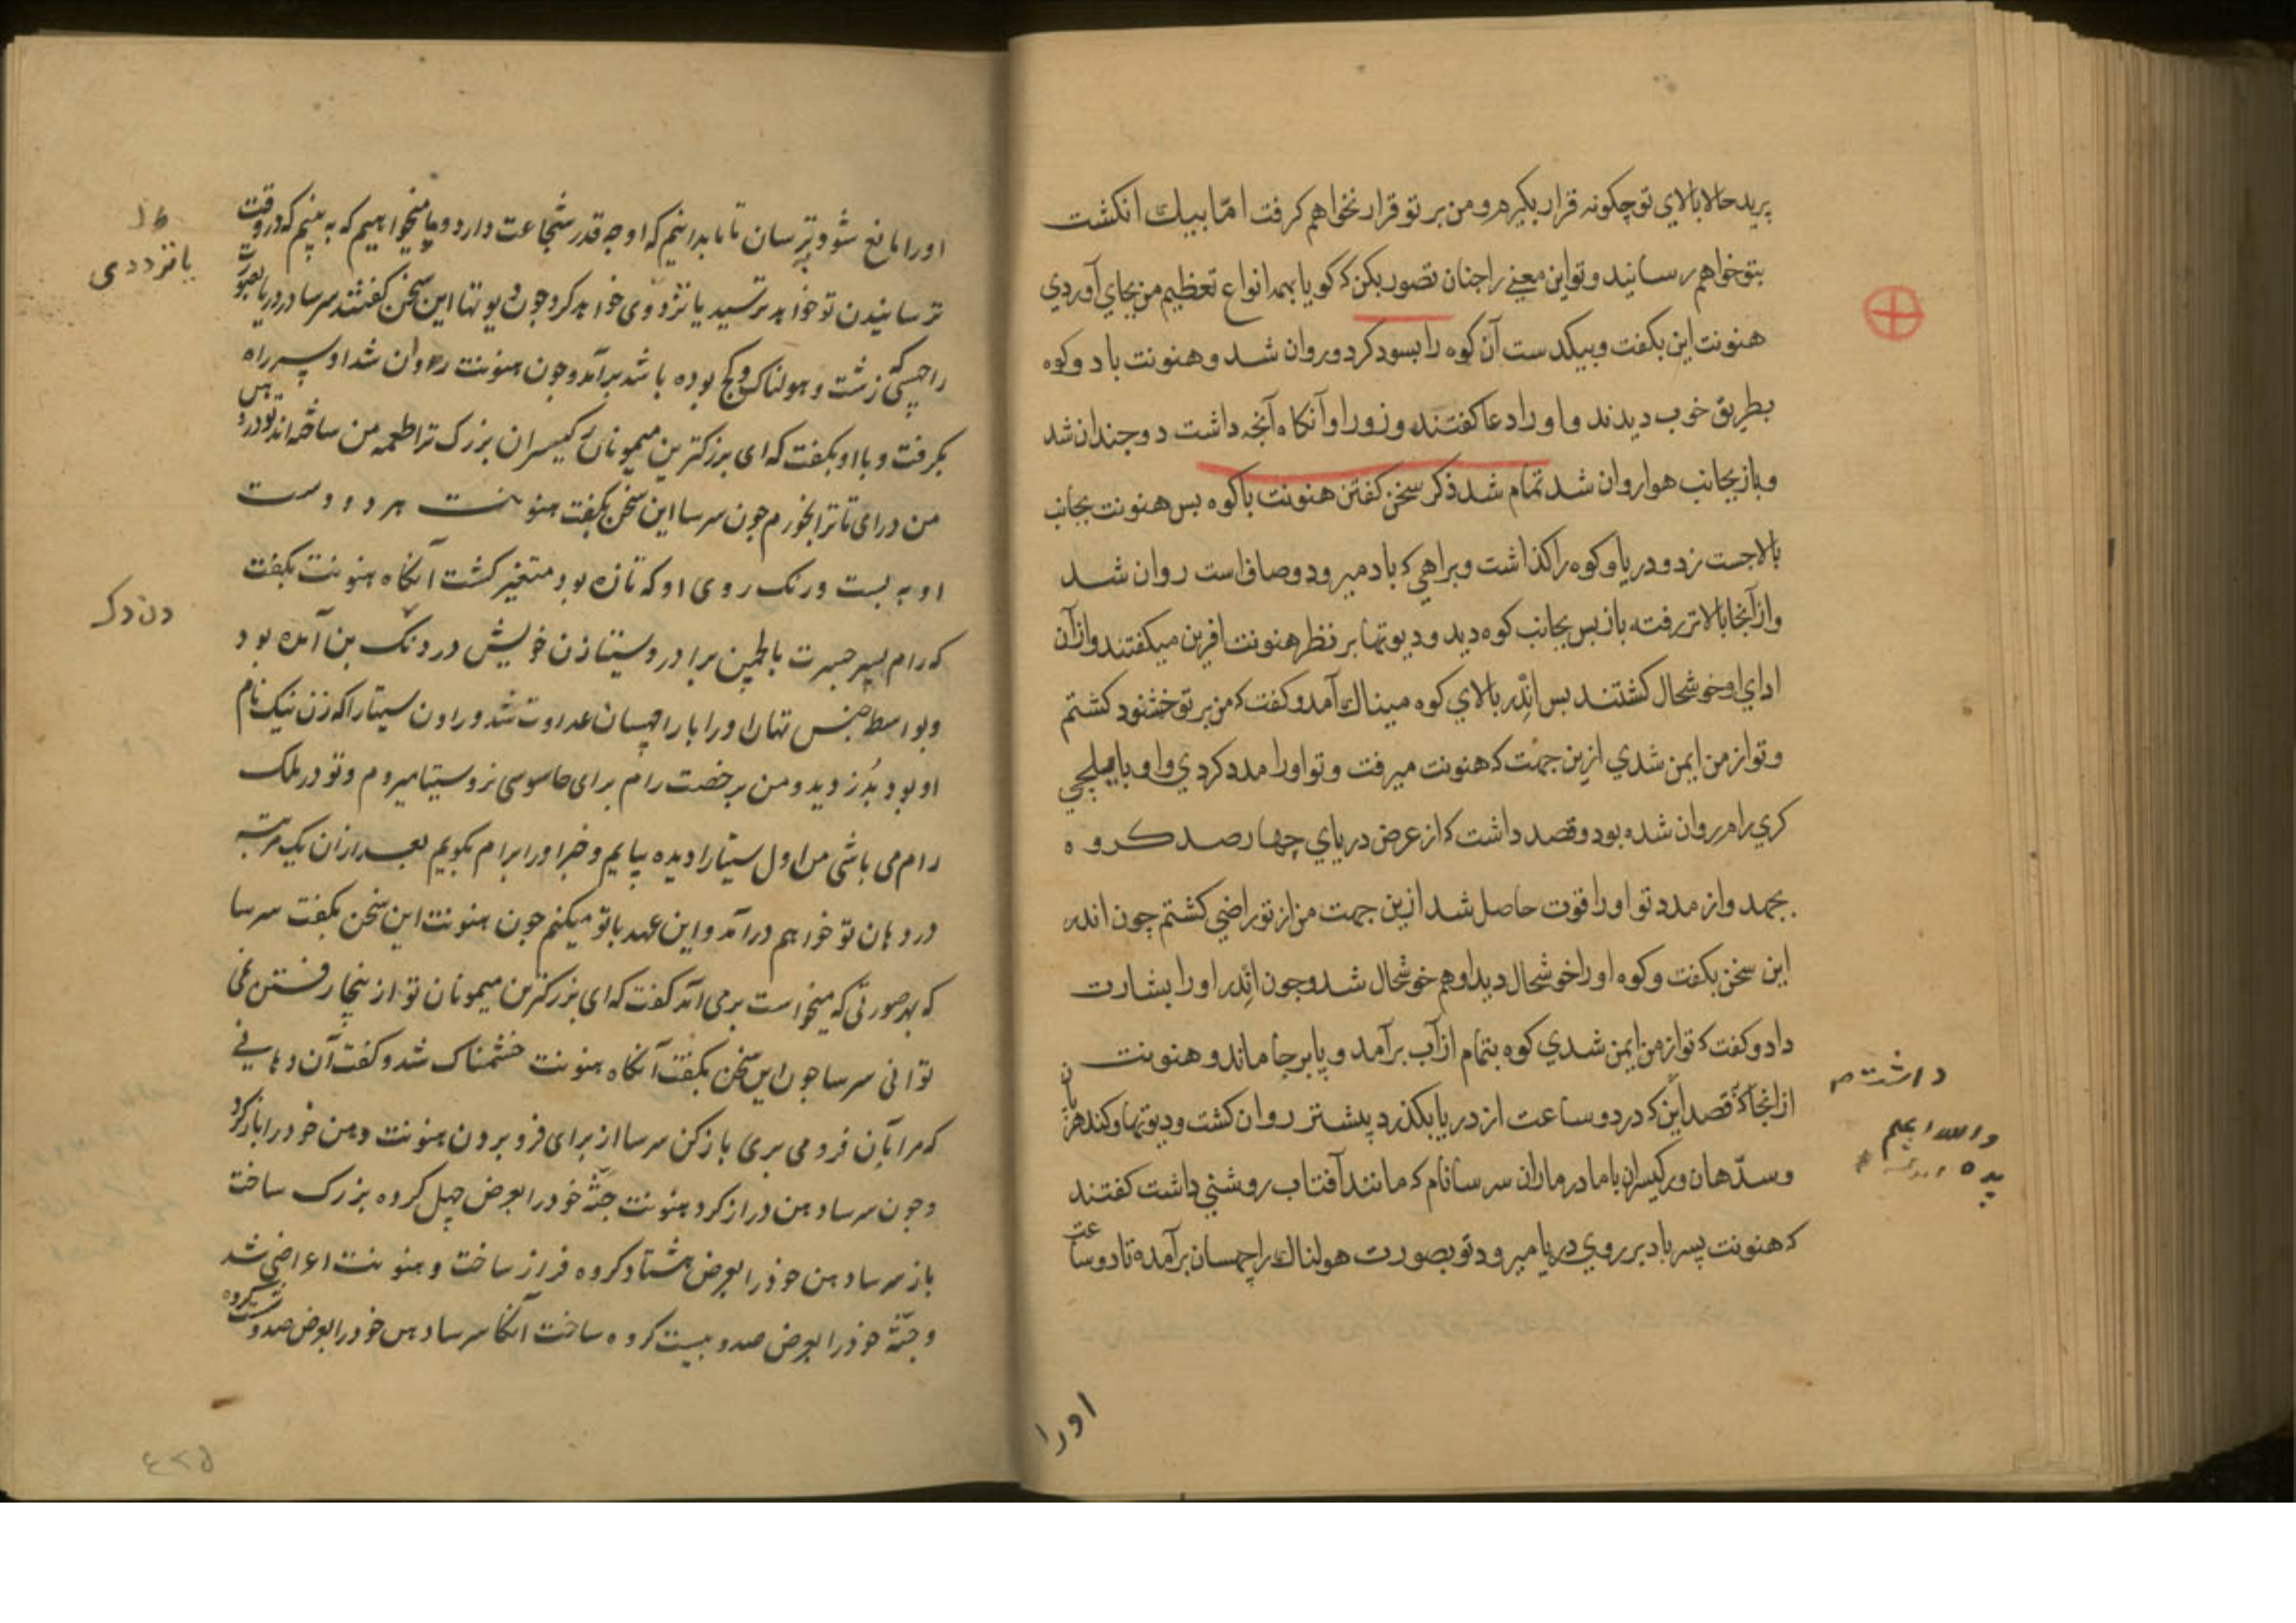 پرید حالا بالای تو چکونه قرار بکیرم و من بر تو قرار نخواهم کرفت امّا بیك انکشت
بتو خواهم رسانید و تو این معنے را چنان تصور بکن که کویا بهمه انواع تعظیم من بجای آوردی
هنونت این بکفت و بیکدست آن کوه را بسود کرد و روان شد و هنونت باد و کوه
بطریق خوب دیدند و او را دعا کفتند و زور او آنکاه آنچه داشت دوچندان شد
و باز بجانب هوا روان شد تمام شد ذکر سخن کفتن هنونت با کوه بس هنونت بجانب
بالا جست زد و دریا و کوه را کذاشت و براهی که باد میرود و صاف است روان شد
و از آنجا بالاتر رفته باز بس بجانب کوه دید و دیوتها بر نظر هنونت افرین میکفتند و از آن
ادای او خوشحال کشتند بس انْدر بالای کوه میناك آمد و کفت که من بر تو خشنود کشتم
و تو از من ایمن شدی ازین جهت که هنونت میرفت و تو او را مدد کردی و او با یلچی
کری رام روان شده بود و قصد داشت که از عرض دریای چهار صد کروه
بجهد و از مدد تو او را قوت حاصل شد ازین جهت من از تو راضی کشتم چون اندر
این سخن بکفت و کوه او را خوشحال دید او هم خوشحال شد و چون انْدر او را بشارت
داد و کفت که تو از من ایمن شدی کوه بتمام از آب برآمد و پا بر جا ماند و هنونت
از انجا که قصد این که در دو ساعت از دریا بکذرد پیشتر روان کشت و دیوتها و کندهربان
و سدّهان و رکیسران با مادر ماران سرسا نام که مانند آفتاب روشنی داشت کفتند
که هنونت پسر باد بر روی دریا میرود تو بصورت هولناك راچهسان برآمده تا دو ساعت
داشت م
اورا
او را مانع شو و بترسان تا ما بدانیم که او چه قدر شجاعت دارد و ما میخواهیم که به بینیم که در وقت
ترسانیدن تو خواهد ترسید یا نزدوی خواهد کرد و چون دیوتها این سخن کفتند سرسا در دریا بصورت
راچهسی زشت و هولناک و کج بوده باشد برآمد و چون هنونت روان شد او سر راه
بکرفت و با او بکفت که ای بزرکترین میمونان رکیسران بزرک ترا طعمه من ساخته اند تو در دهن
من درای تا ترا بخورم چون سرسا این سخن بکفت هنونت هر دو دست
او به بست و رنک روی او که تازه بود متغیر کشت آنکاه هنونت بکفت
که رام پسر جسرت با لچمن برادر و سیتا زن خویش در دنڈک بن آمده بود
و بواسطه جنس تهان او را با راچهسان عداوت شد و راون سیتا را که زن نیک نام
او بود بدزدید و من برخصت رام برای جاسوسی نزد سیتا میروم و تو در ملک
رام می باشی من اول سیتا را دیده بیایم و خبر او را برام بکویم بعد از ان یک مرتبه
در دهان تو خواهم درآمد و این عهد با تو میکنم چون هنونت این سخن بکفت سرسا
که بهر صورتی که میخواست برمی آمد کفت که ای بزرکترین میمونان تو از ینجا رفتن نمی
توانی سرسا چون این سخن بکفت آنکاه هنونت خشمناک شد و کفت آن دهانی
که مرا بآن فرو می بری باز کن سرسا از برای فرو بردن هنونت دهن خود را باز کرد
و چون سرسا دهن دراز کرد هنونت جثّه خود را بعرض چهل کروه بزرک ساخت
باز سرسا دهن خود را بعرض هشتاد کروه فراز ساخت و هنونت اعراضی شد
و جثّه خود را بعرض صد و بیست کروه ساخت آنکا سرسا دهن خود را بعرض صد و شست کروه
یا نزددی
دندک